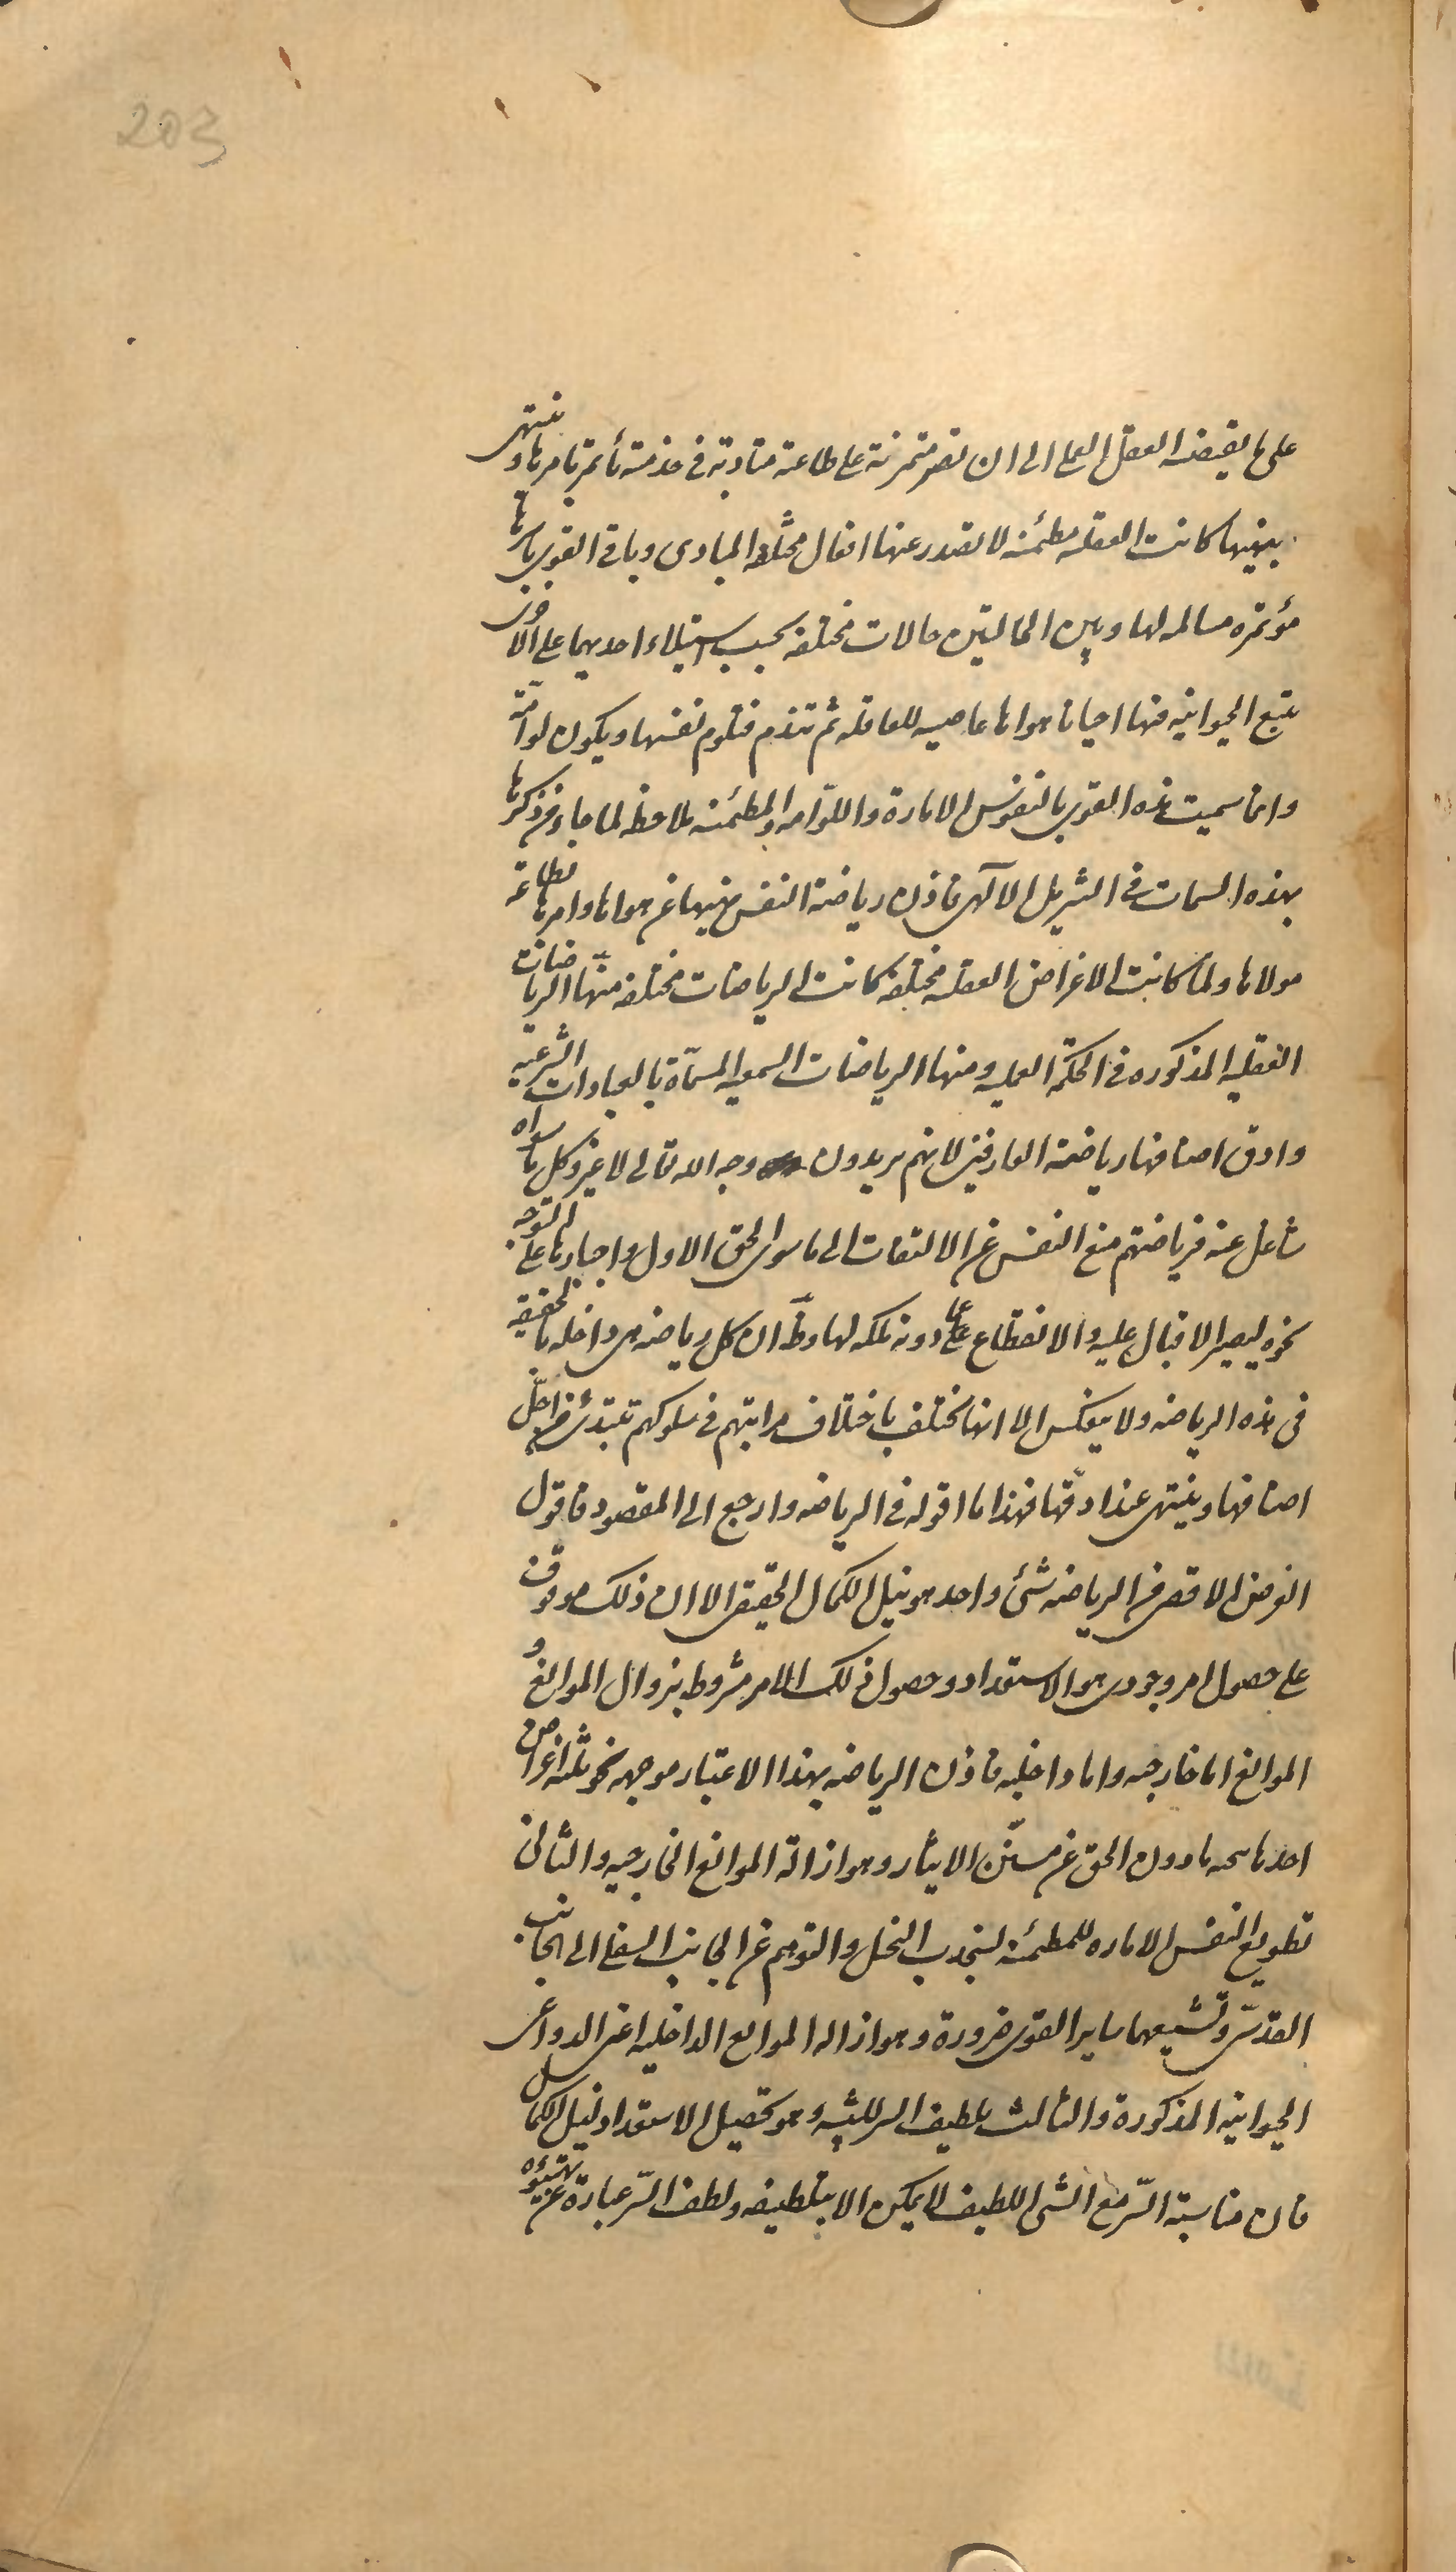 203
على ما يقتضه العقل العملى الى ان تصير متمرنة على طاعته متادبة فى خدمته تأتمر بامرها و تنتهى
بنهيها كانت العقليه مطمئنه لا تصدر عنها افعال مختلفة المبادى وباقى القوى باسرها
مؤتمره مسالمه لها وبين الحالتين حالات مختلفه بحسب استيلاء احديهما على الاخرى
يتبع الحيوانيه فيها احيانا هواها عاصيه للعاقله ثم تندم فتلوم نفسها ويكون لوامّة
وانما سميت هذه القوى بالنفوس الامارة واللوّامه والمطمئنه ملاحظه لما جاء من ذكرها
بهذه السمات فى التنزيل الآلهى فاذن رياضة النفس نهيها عن هواها وامرها بطاعة
مولاها ولما كانت الاغراض العقليه مختلفه كانت الرياضات مختلفه منها الرياضات
العقليه المذكوره فى الحكمة العمليه ومنها الرياضات السمعيه المسمّاة بالعبادات الشرعيّه
وادق اصنافها رياضة العارفين لانهم يريدون وجه الله تعالى لا غير وكل ما سواه
شاغل عنه فرياضتهم منع النفس عن الالتفات الى ما سوى الحق الاول واجبارها على التوجه
نحوه ليصير الاقبال عليه والانقطاع عما دونه ملكه لها وظ ان كل رياضه هى داخله بالحقيقه
فى هذه الرياضه ولا ينعكس الا انها تختلف باختلاف مراتبهم فى سلوكهم تبتدئ من اجلّ
اصنافها وينتهى عند ادقّها فهذا ما اقوله فى الرياضه وارجع الى المقصود فاقول
الغرض الاقصى من الرياضه شئ واحد هو نيل الكمال الحقيقى الا ان ذلك موقوف
على حصول امر وجودى هو الاستعداد وحصول ذلك الامر مشروط بزوال الموانع و
الموانع اما خارجيه واما داخليه فاذن الرياضه بهذا الاعتبار موجهه نحو ثلثه اغراض
احدها تنحيه ما دون الحق عن مستنّ الايثار وهو ازالة الموانع الخارجيه والثانى
تطويع النفس الاماره للمطمئنه لينجذب التخيل والتوهم عن الجانب السفلى الى الجانب
القدسّى وتشيعهما ساير القوى ضرورة وهو ازاله الموانع الداخليه اعنى الدواعى
الحيوانيه المذكورة والثالث تلطيف السر للتنبه وهو تحصيل الاستعداد لنيل الكمال
فان مناسبة السّر مع الشى اللطيف لا يمكن الا بتلطيفه ولطف السّر عبارة عن تهيئوه